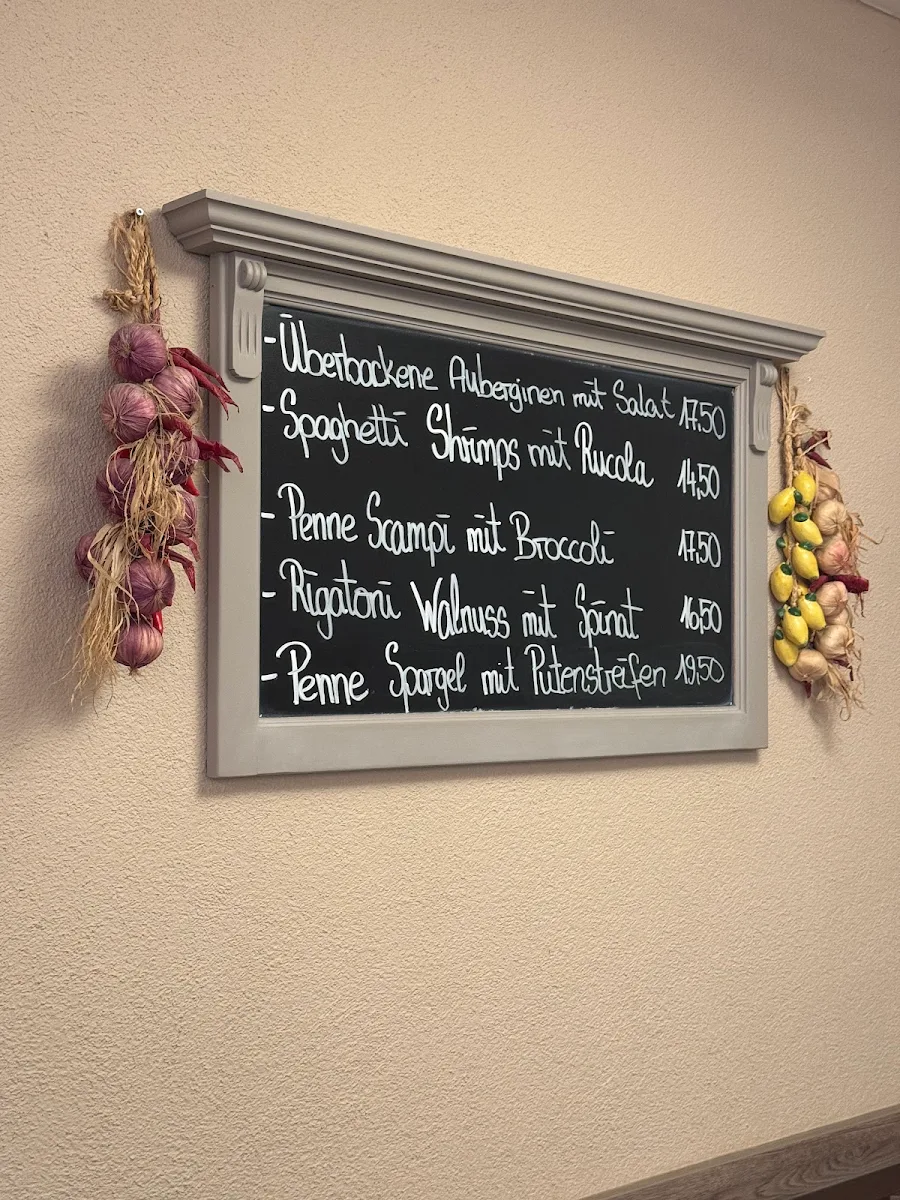 - Überbackene Auberginen mit Salat 17,50
- Spaghetti Shrimps mit Rucola 14,50
- Penne Scampi mit Broccoli 17,50
- Rigatoni Walnuss mit Spinat 16,50
- Penne Spargel mit Putenstreifen 19,50